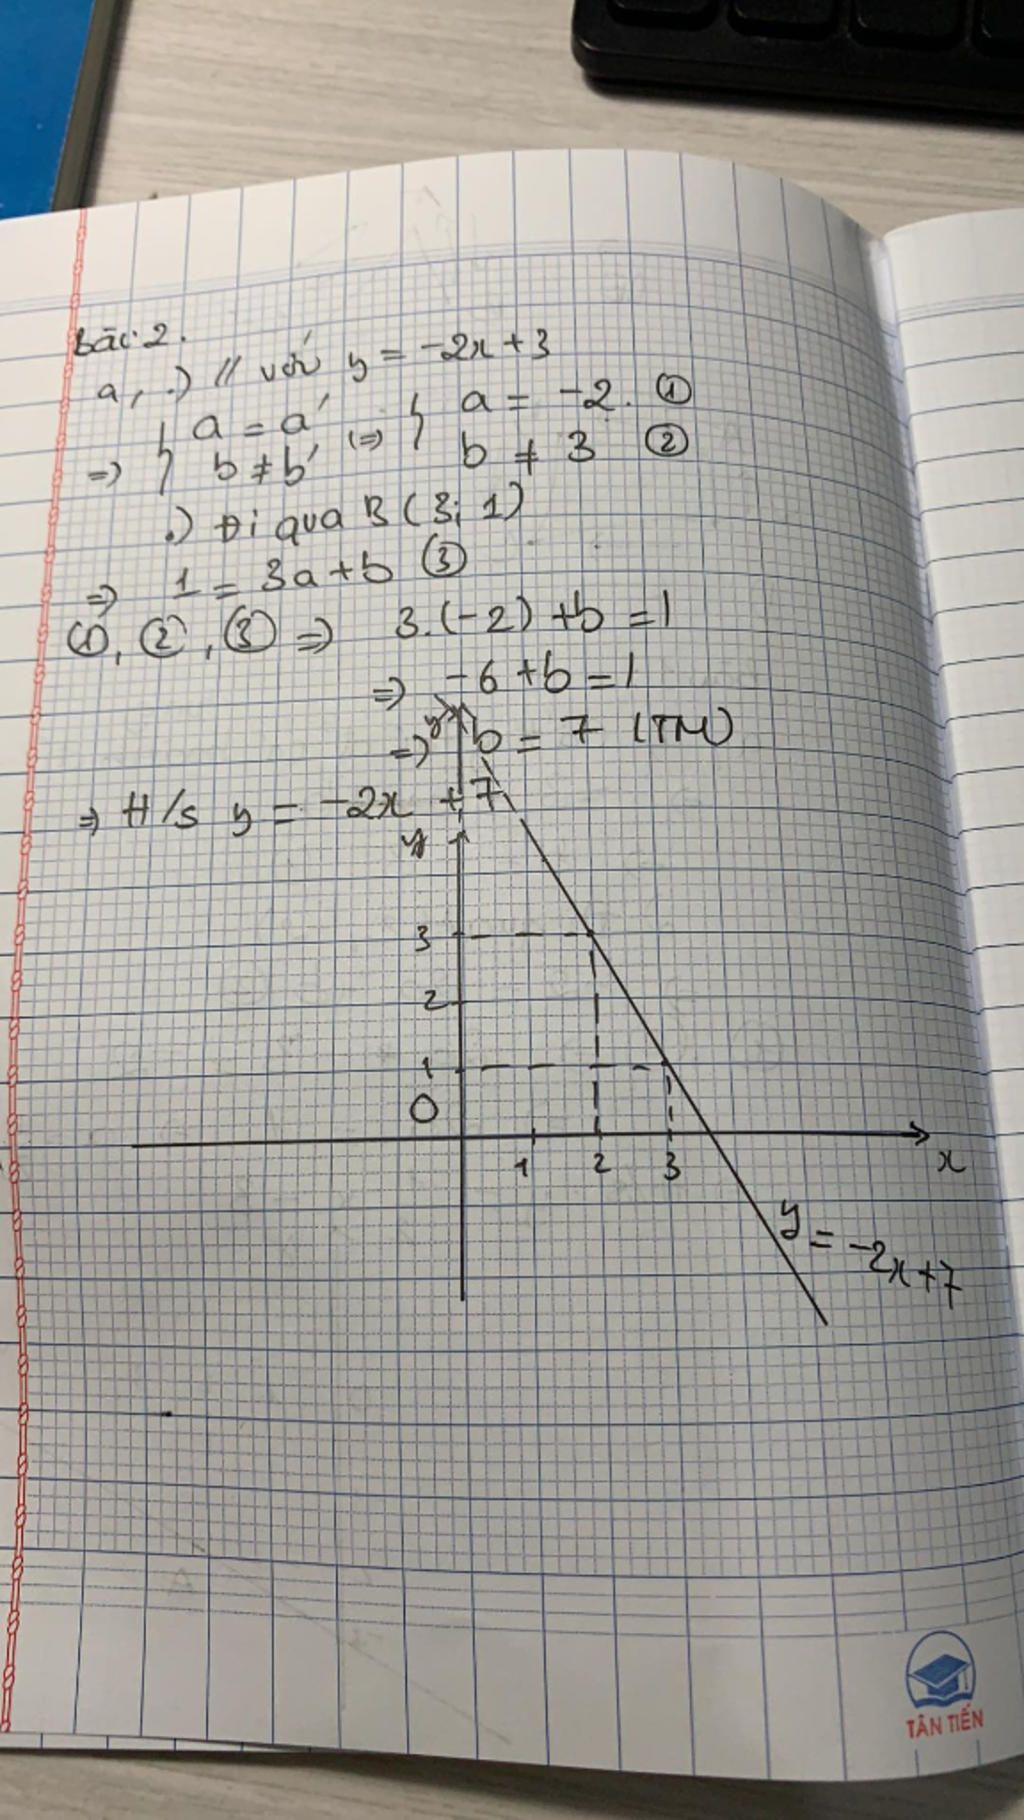 Bài 2.
a, .) // với y = -2x + 3
=> { a = a' (=) { a = -2. ①
b ≠ b' b ≠ 3 ②
.) Đi qua B (3; 1)
=> 1 = 3a + b ③
①, ②, ③ => 3.(-2) + b = 1
=> -6 + b = 1
y
=> b = 7 (TM)
=> H/s y = -2x + 7
y
3
2
1
O
1 2 3 x
y = -2x + 7
TÂN TIẾN